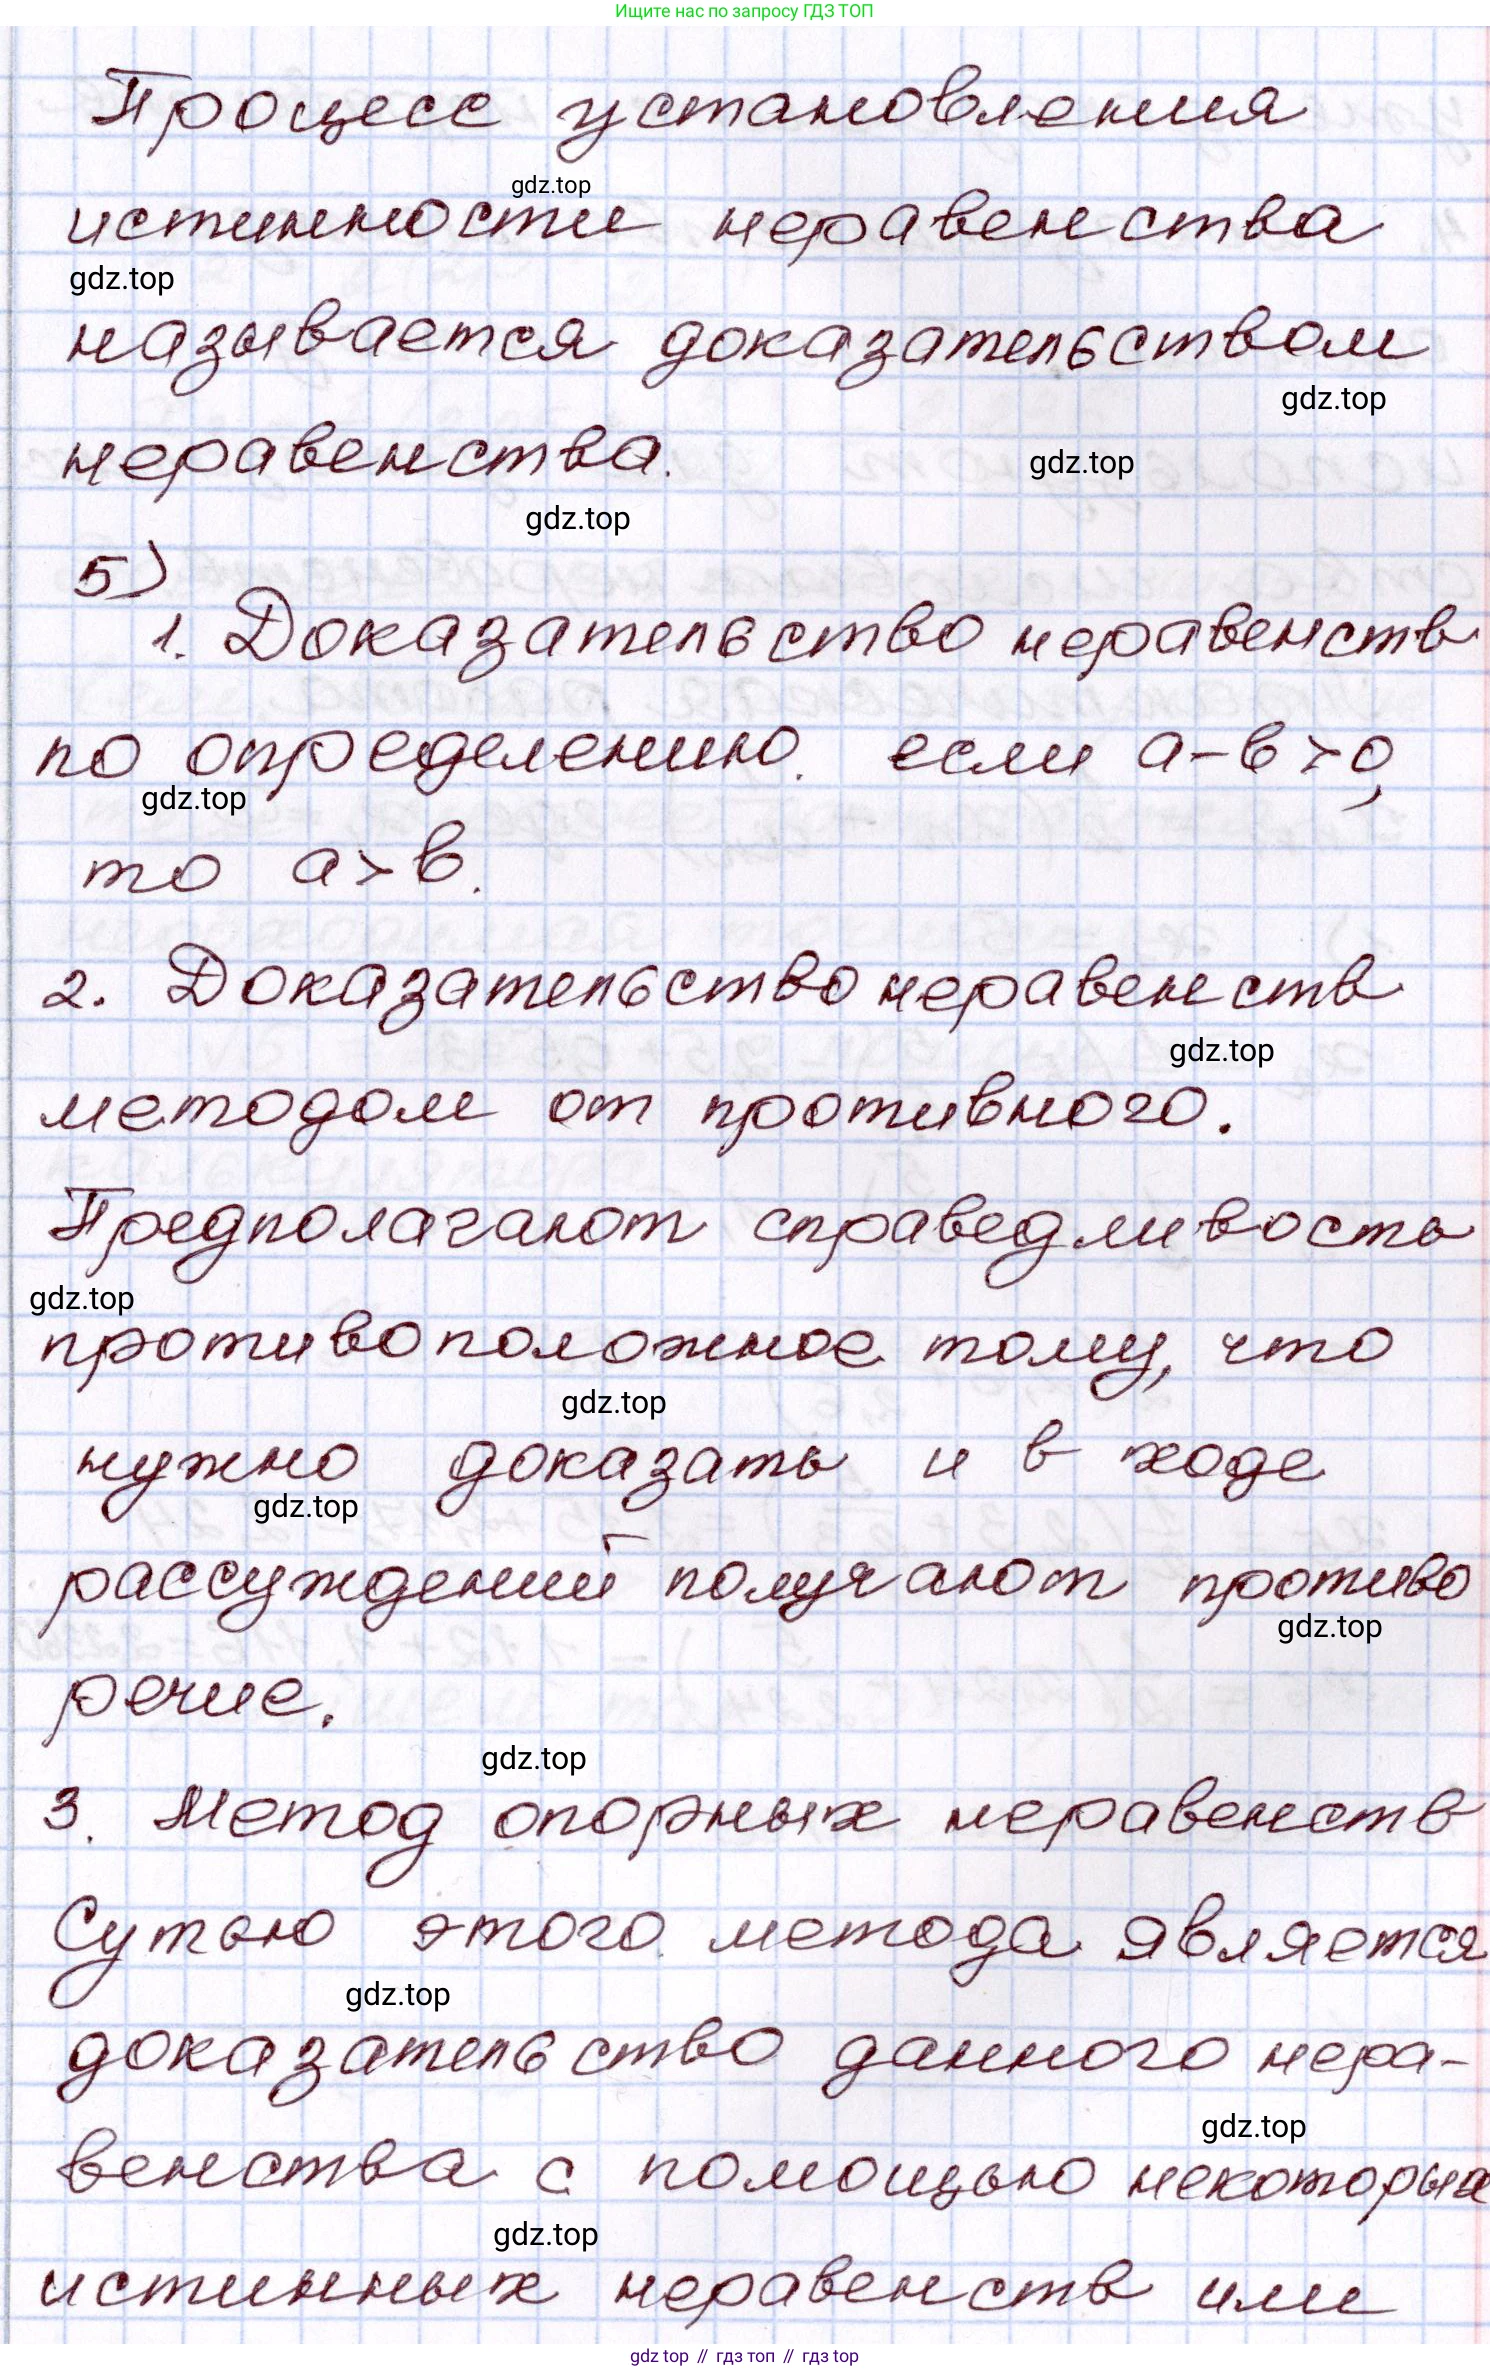 Ищите нас по запросу ГДЗ ТОП
Процесс установления
gdz.top
истинности неравенства
gdz.top
называется доказательством
gdz.top
неравенства.
gdz.top
gdz.top
5)
1. Доказательство неравенств
по определению. если a-b>0,
gdz.top
то a>b.
2. Доказательство неравенств
gdz.top
методом от противного.
Предполагают справедливость
gdz.top
противоположное тому, что
gdz.top
нужно доказать и в ходе
gdz.top
рассуждений получают противо
gdz.top
речие.
gdz.top
3. Метод опорных неравенств
Сутью этого метода является
gdz.top
доказательство данного нера-
gdz.top
венства с помощью некоторых
gdz.top
истинных неравенств или
gdz top // гдз топ // гдз top